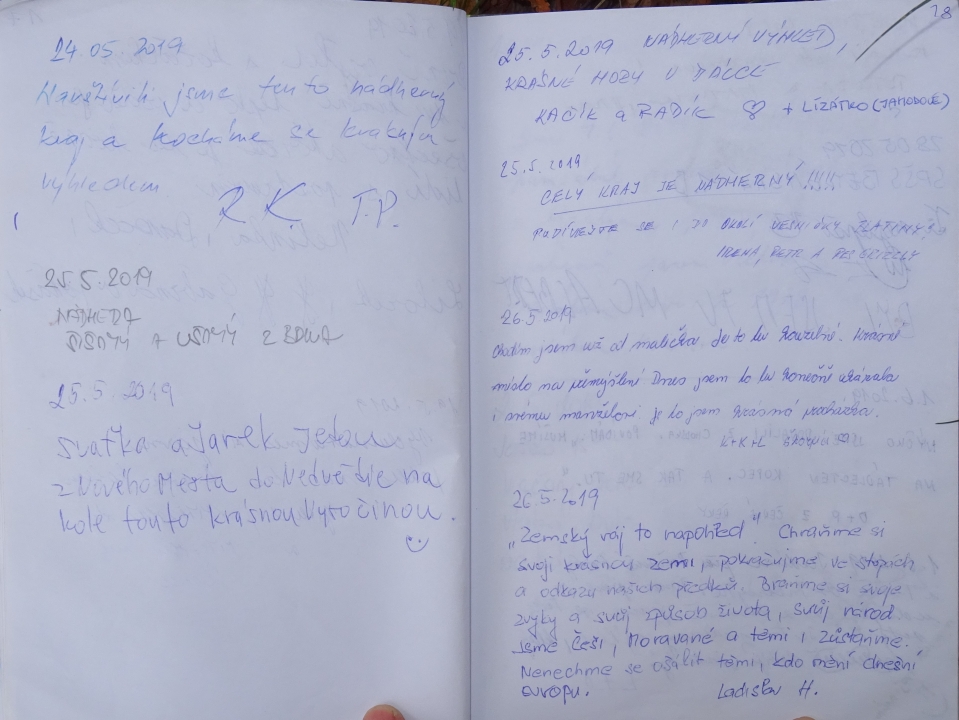 24.05.2019
Navštívili jsme tento nádherný
kraj a kocháme se krásným
výhledem
R.K T.P.
25.5.2019
NÁDHERA
ŠIŠMÝ A UŠMÝ Z BRNA
25.5.2019
Svaťka a Jarek jedou
z Nového Města do Nedvědic na
kole touto krásnou Vysočinou.
18
25.5.2019 NÁDHERNÝ VÝHLED,
KRÁSNÉ HOZY V DÁLCE
KAČÍK a RADÍK ♡ + LÍZÁTKO (JAHODOVÉ)
25.5.2019
CELÝ KRAJ JE NÁDHERNÝ!!!!!
PODÍVEJTE SE I DO OKOLÍ VESNIČKY
IRENA, PETR A PES GRIZZLY
26.5.2019
Chodím jsem už od malička. Je to tu kouzelné. Krásné
místo na přemýšlení Dnes jsem to tu konečně ukázala
i svému manželovi je to jsem krásná procházka.
K+K+L
26.5.2019
„Zemský ráj to napohled" Chraňme si
svoji krásnou zemi, pokračujme ve stopách
a odkazu našich předků. Braňme si svoje
zvyky a svůj způsob života, svůj národ
jsme Češi, Moravané a těmi i zůstaňme.
Nenechme se ošálit těmi, kdo mění dnešní
evropu. Ladislav H.